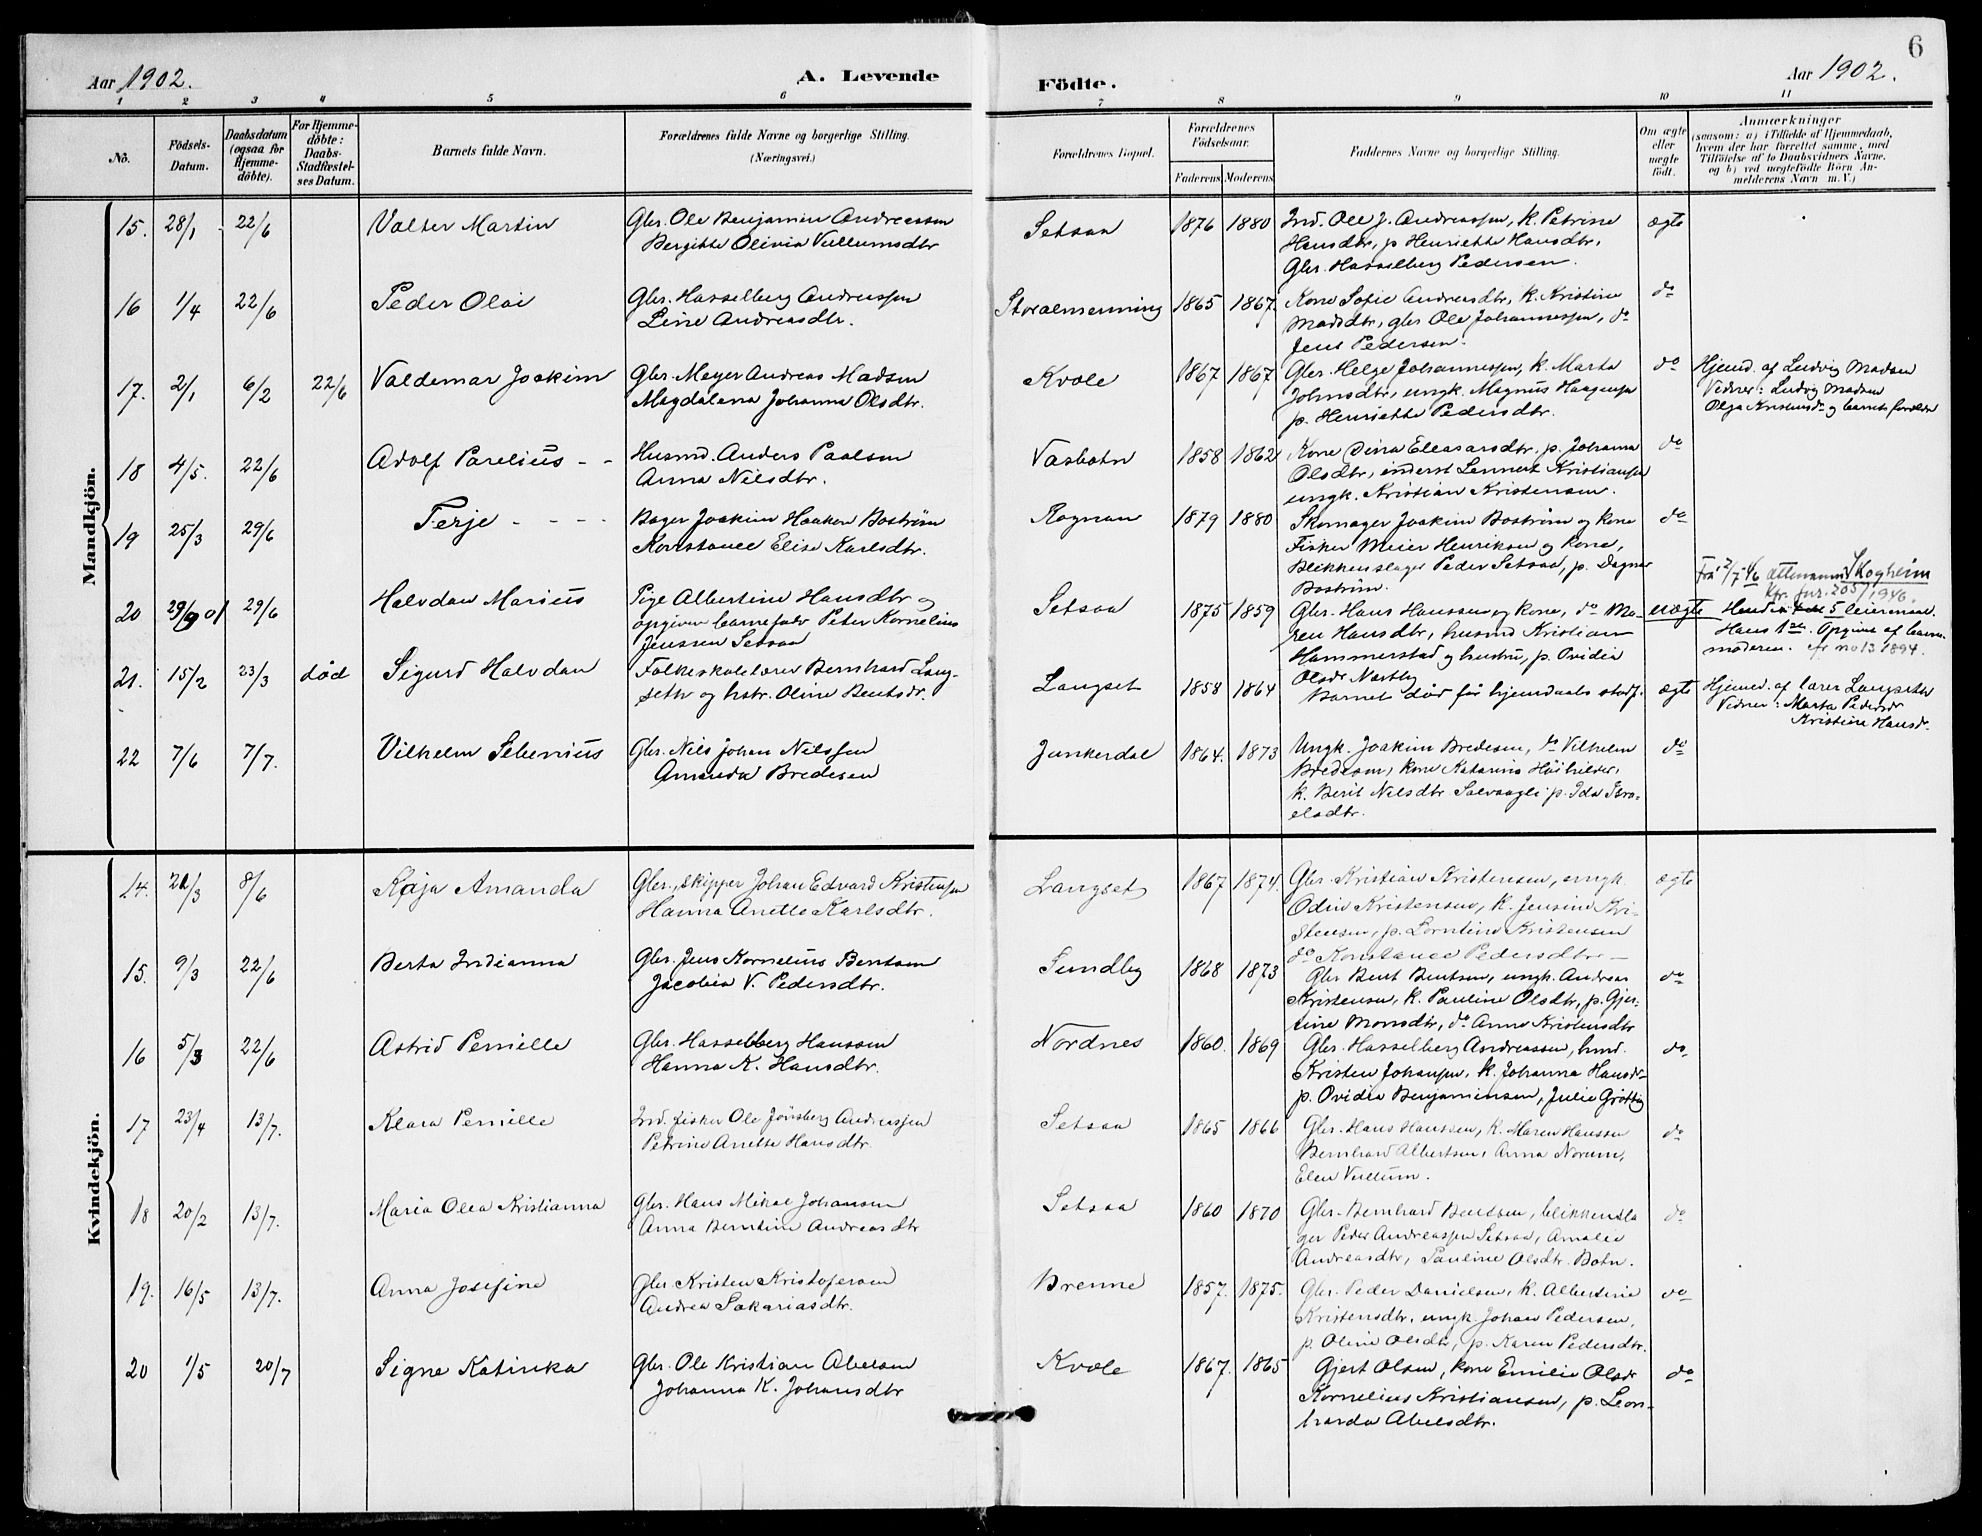 6
Aar 1902.
A. Levende
Födte.
Aar 1902.
1 2 3 4 5 6 7 8 9 10 11
No.
Födsels-
Datum.
Daabsdatum
(ogsaa for
Hjemme-
döbte).
For Hjemme-
döbte:
Daabs-
Stadfæstel-
ses Datum.
Barnets fulde Navn.
Forældrenes fulde Navne og borgerlige Stilling.
(Næringsvei.)
Forældrenes Bopæl.
Forældrenes
Födselsaar.
Faderens
Moderens
Faddernes Navne og borgerlige Stilling.
Om ægte
eller
uægte
födt.
Anmærkninger
(saasom: a) i Tilfælde af Hjemmedaab,
hvem der har forrettet samme, med
Tilföielse af to Daabsvidners Navne,
og b) ved uægtefödte Börn An-
melderens Navn m. V.)
Mandkjön.
15. 28/1 22/6 Valter Martin
Gbr. Ole Benjamin Andreassen
Bergitte Olivia Vullumsdtr
Setsaa 1876 1880
Ind. Ole J. Andreassen, k. Petrine
Hansdtr, p Henriette Hansdtr.
Gbr. Hasselberg Pedersen.
ægte
16 1/4 22/6 Peder Olai
Gbr. Hasselberg Andreassen
Line Andreasdtr.
Storalmenning 1865 1867.
Kone Sofie Andreasdtr, k. Kristine
Madsdtr, gbr Ole Johannessen, do
Jens Pedersen.
do
17. 2/1 6/2 22/6 Valdemar Joakim
Gbr. Meyer Andreas Madsen
Magdalena Johanna Olsdtr.
Kvæle 1867 1867
Gbr. Helge Johannessen, k. Marta
Johnsdtr, ungk. Magnus Haagensen
p. Henriette Pedersdtr.
do
Hjemd. af Ludvig Madsen
Vidner: Ludvig Madsen
Olga Kristensdr og barnets forældre
18 4/5. 22/6 Adolf Parelius - -
Husmd. Anders Paalsen
Anna Nilsdtr.
Vasbotn 1858 1862
Kone Dina Eleasarsdtr. p. Johanna
Olsdtr, inderst Lennert Kristiansen
ungk. Kristian Kristensen.
do
19 25/3 29/6 Terje - - - -
Bager Joakim Haaken Boström
Konstance Elise Karlsdtr.
Rognan 1879 1880
Skomager Joakim Boström og kone
Fisker Meier Henriksen og kone,
Blikkenslager Peder Setsaa, p. Dagmar
Boström.
do
20 29/9 01 29/6 Halvdan Marius
Pige Albertine Hansdtr og
opgiven barnefader Peter Kornelius
Jenssen Setsaa
Setsaa 1875 1859
Gbr. Hans Hanssen og kone, do Ma-
ren Hansdtr, husmd Kristian
Hammerstad og hustru, p. Ovidia
Olsdr Næstby
uægte
Fra 2/7 46 ættenavn Skogheim
Kfr. jnr. 205/1946.
Hendes 5 leiermaal.
Hans 1ste. Opgivet af barne-
moderen. cfr no 13 1894.
21. 15/2 23/3 død Sigurd Halvdan
Folkeskolelærer Bernhard Lang-
seth og hstr. Oline Bentsdr.
Langset 1858 1864
Barnet død før hjemdaabs stadf.
ægte
Hjemd. af lærer Langseth
Vidner: Marta Pedersdr
Kristine Hansdr.
22 7/6 7/7. Vilhelm Sebenius
Gbr. Nils Johan Nilssen
Amanda Bredesen
Junkerdal 1864. 1873
Ungk. Joakim Bredesen, do Vilhelm
Bredesen, kone Katarina Höihilder,
k. Berit Nilsdtr Solvaagli p. Ida Isra-
elsdtr.
do
Kvindekjön.
14. 21/3 8/6 Kaja Amanda
Gbr., skipper Johan Edvard Kristensen
Hanna Anette Karlsdtr.
Langset 1867 1874.
Gbr. Kristian Kristensen, ungk.
Odin Kristensen, k. Jensine Kri-
stensen, p. Lorntine Kristensen
do Konstance Pedersdtr -
ægte
15. 9/3 22/6 Berta Indianna
Gbr. Jens Kornelius Bentsen
Jacobia V. Pedersdtr.
Sundby 1868 1873
Gbr Bent Bentsen, ungk. Andreas
Kristensen, k. Pauline Olsdtr, p. Gjer-
tine Monsdtr, do Anna Kristensdtr
do
16 5/3 22/6 Astrid Pernille
Gbr. Hasselberg Hanssen
Hanna K. Hansdtr.
Nordnes 1860. 1869
Gbr. Hasselberg Andreassen, hmd.
Kristen Johansen, k. Johanna Hansdr
p. Ovidia Benjaminsen, Julie Gröttig
do.
17 23/4 13/7. Klara Pernille
Ind. fisker Ole Jönsberg Andreassen
Petrine Anette Hansdtr.
Setsaa 1865 1866
Gbr. Hans Hanssen, k. Maren Hanssen
Bernhard Albertsen, Anna Norum,
Elen Vullum.
do
18 20/2 13/7. Maria Olea Kristianna
Gbr. Hans Mikal Johansen
Anna Berntine Andreasdtr
Setsaa 1860 1870
Gbr. Bernhard Bentsen, blikkensla
ger Peder Andreassen Setsaa, Amalie
Andreasdtr, Pauline Olsdtr. Botn.
do
19. 16/5 13/7. Anna Josefine
Gbr Kristen Kristofersen
Andrea Sakariasdtr.
Brenne 1857. 1875.
Gbr. Peder Danielsen, k. Albertine
Kristensdtr, ungk. Johan Pedersen,
p. Oline Olsdtr, p. Karen Pedersdtr.
do
20 1/5 20/7 Signe Katinka
Gbr. Ole Kristian Abelsen
Johanna K. Johansdtr
Kvæle 1867. 1865
Gjert Olsen, kone Emilie Olsdr
Kornelius Kristiansen, p. Leon-
harda Abelsdtr.
do